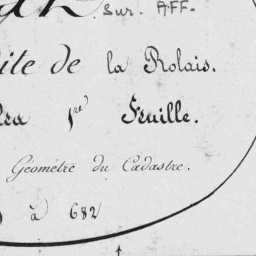 Sur. AFF-
ite de la Rolais.
1re Feuille.
Géometre du Cadastre.
à 682